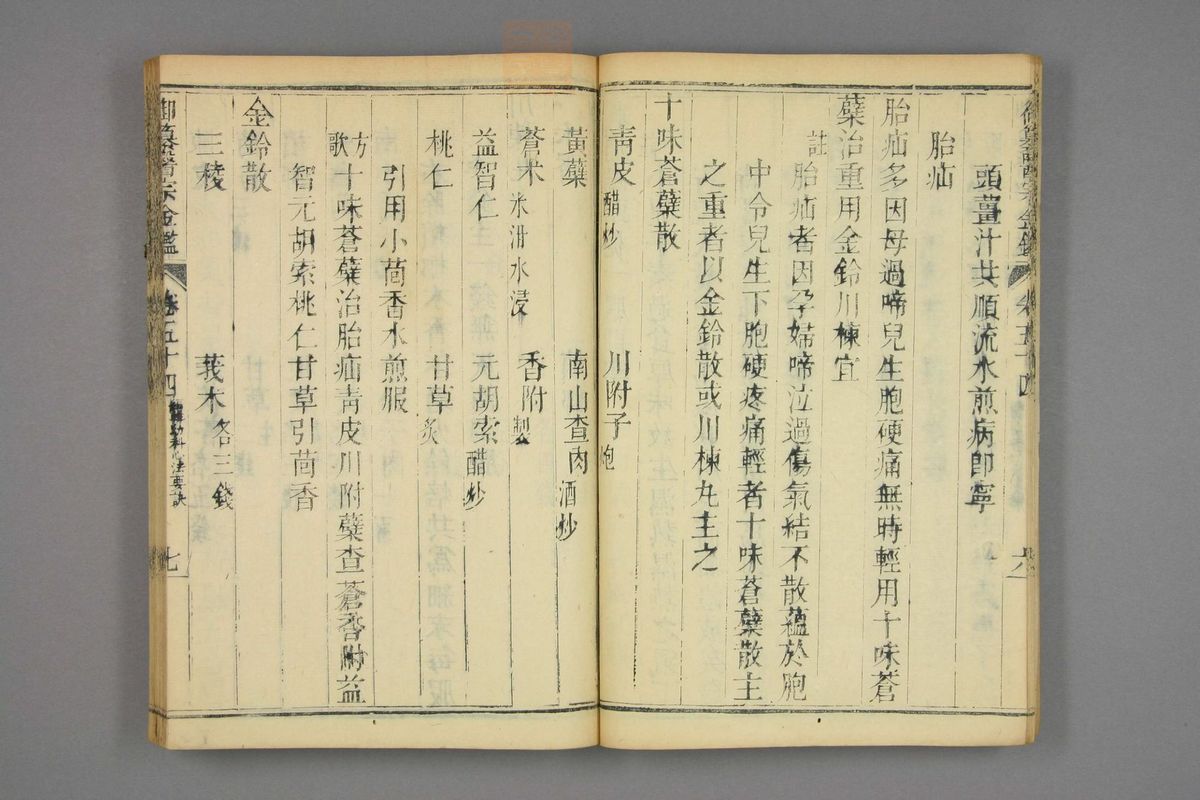 頭薑汁共順流水煎病即寧
胎疝
胎疝多因母過啼兒生胞硬痛無時輕用十味蒼
蘗治重用金鈴川楝宜
註胎疝者因孕婦啼泣過傷氣結不散蘊於胞
中令兒生下胞硬疼痛輕者十味蒼蘗散主
之重者以金鈴散或川楝丸主之
十味蒼蘗散
青皮醋炒 川附子炮
黃蘗 南山查肉酒炒
蒼朮米泔水浸 香附製
益智仁 元胡索醋炒
桃仁 甘草炙
引用小茴香水煎服
方歌十味蒼蘗治胎疝青皮川附蘗查蒼香附益
智元胡索桃仁甘草引茴香
金鈴散
三稜 莪朮各三錢
御纂醫宗金鑑 卷五十四 幼科心法要訣 七